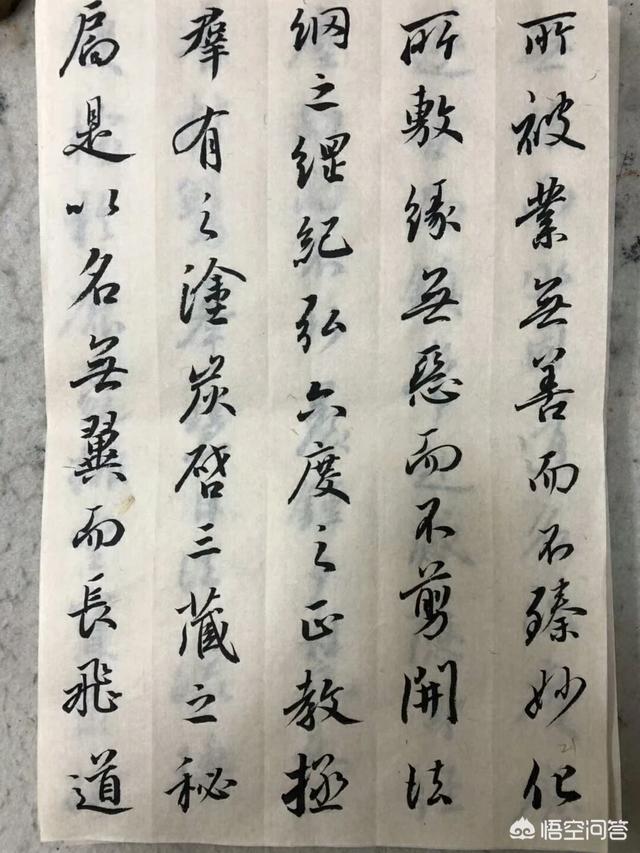 所被業無善而不臻妙化
所敷緣無惡而不剪開法
網之綱紀弘六度之正教拯
羣有之塗炭啓三藏之秘
扃是以名無翼而長飛道
悟空问答